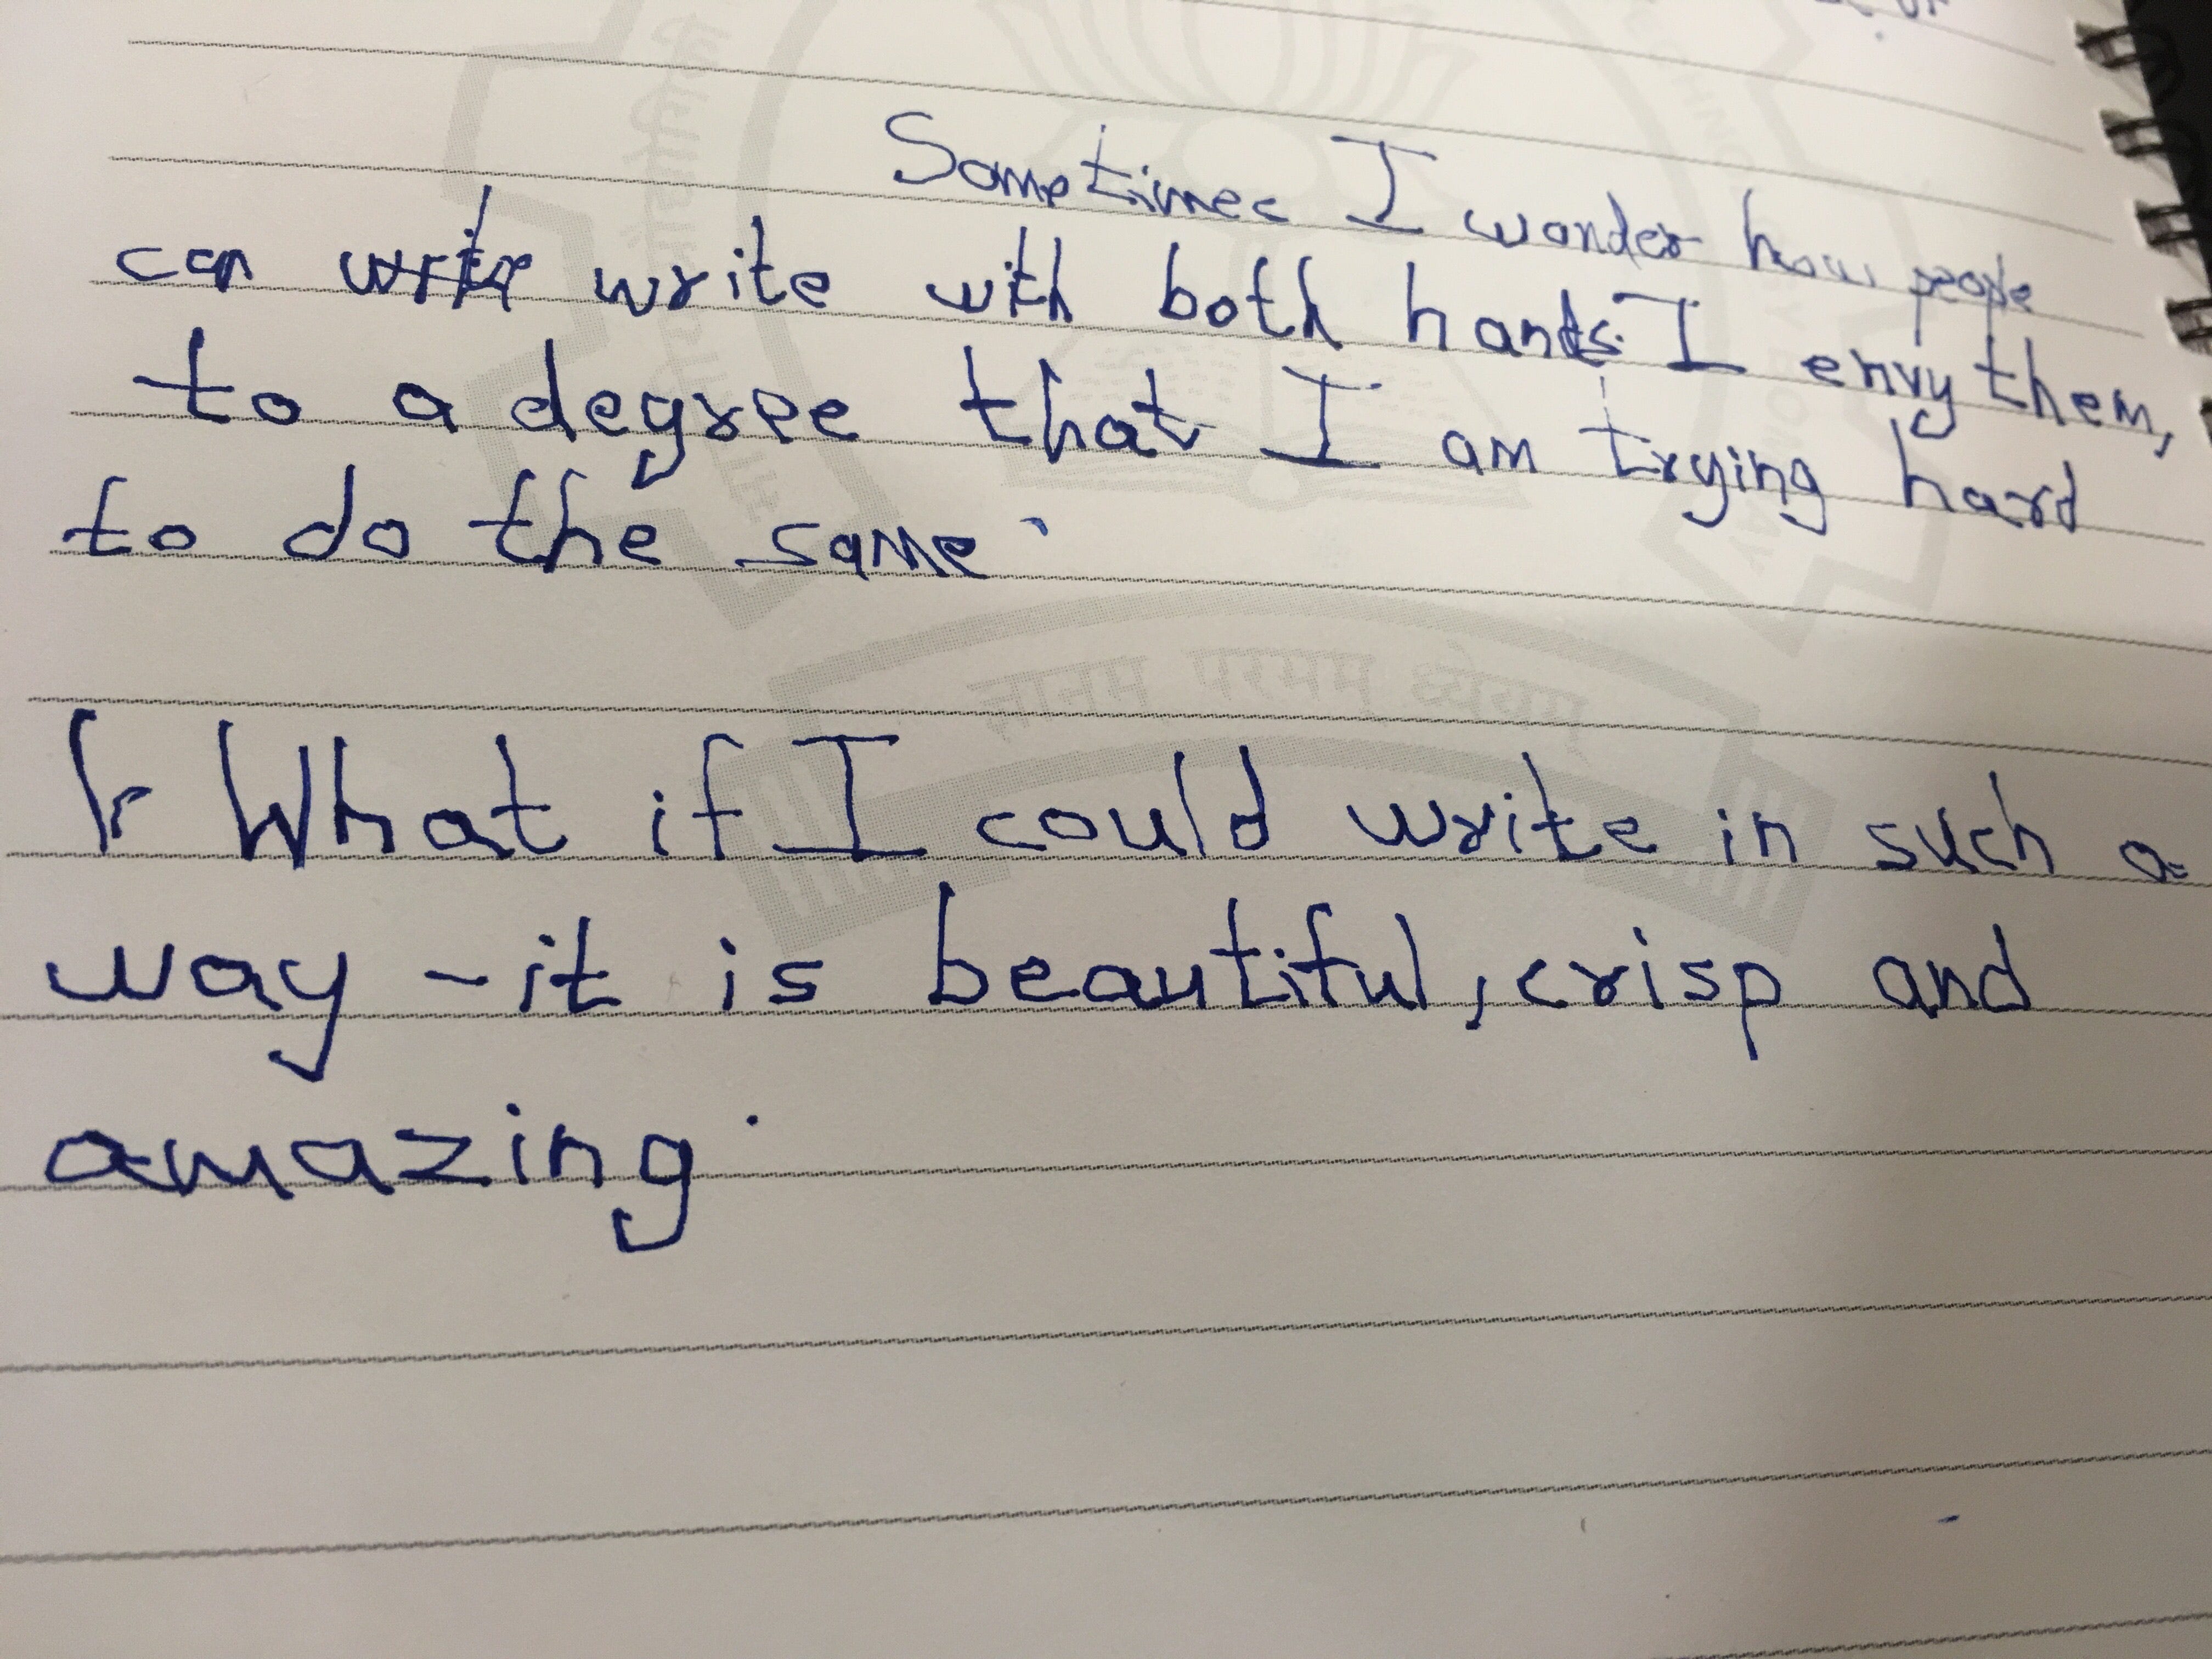 Sometimes I wonder how people
can write write with both hands. I envy them,
to a degree that I am trying hard
to do the same.
ज्ञानम परमम ध्येयम्
What if I could write in such a
way - it is beautiful, crisp and
amazing.